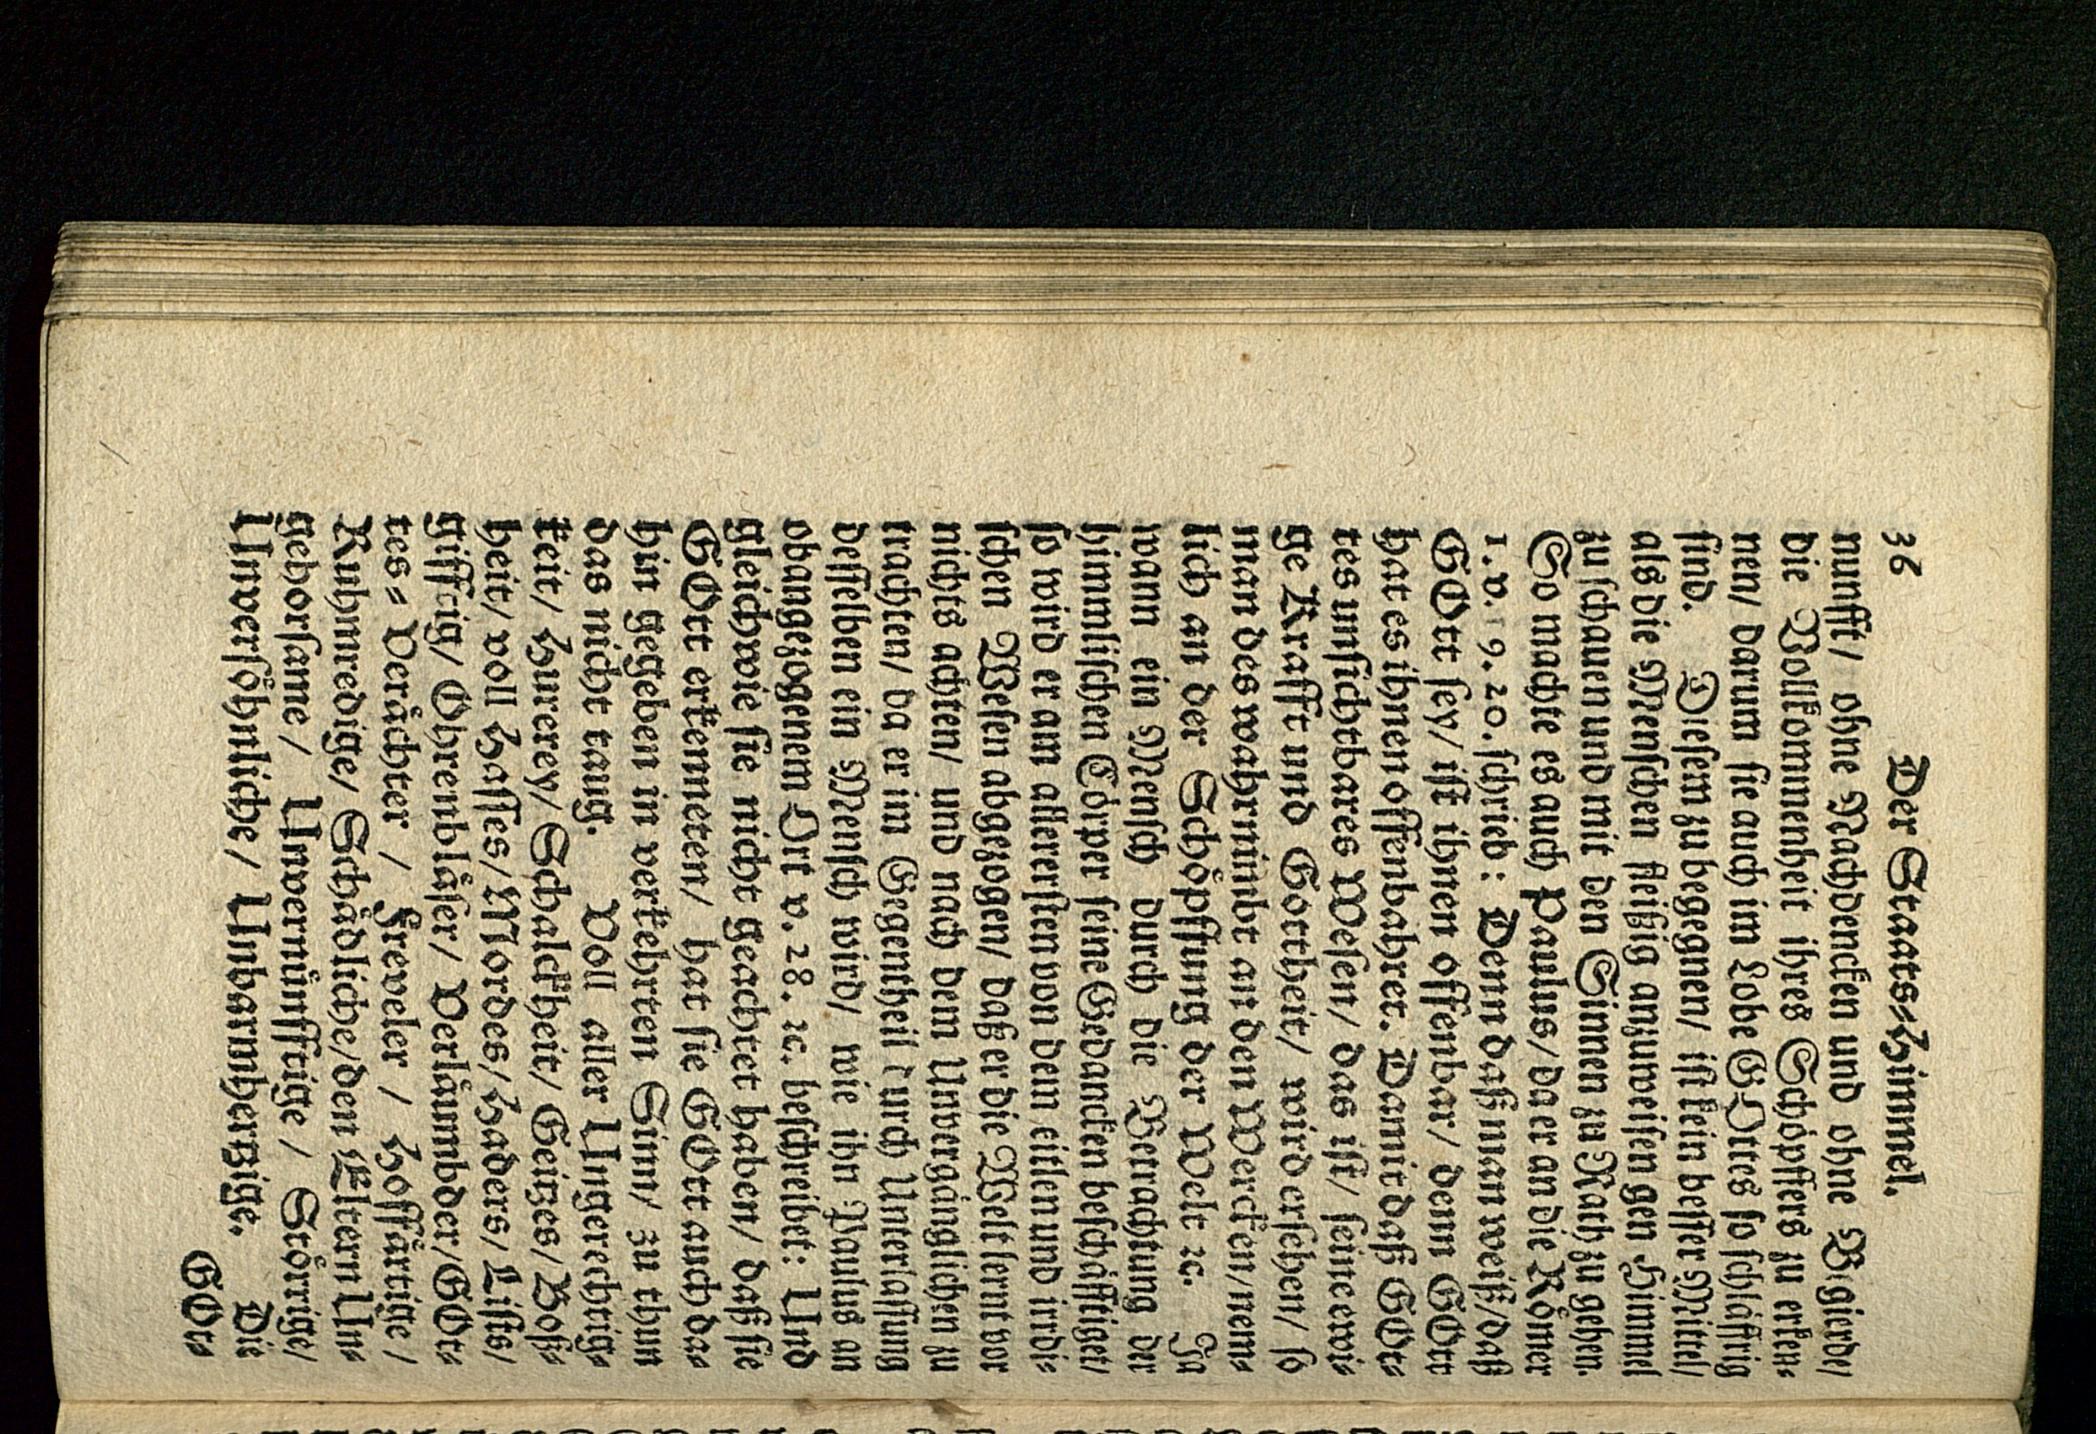 36 Der Staats-Himmel.
nunfft/ ohne Nachdencken und ohne Begierde/
die Vollkommenheit ihres Schöpffers zu erken-
nen/ darum sie auch im Lobe GOttes so schläffrig
sind. Diesem zu begegnen/ ist kein besser Mittel/
als die Menschen fleißig anzuweisen gen Himmel
zu schauen und mit den Sinnen zu Rath zu gehen.
So machte es auch Paulus/ da er an die Römer
1. v. 19. 20. schrieb: Denn daß man weiß/ daß
GOtt sey/ ist ihnen offenbar/ denn GOtt
hat es ihnen offenbahret. Damit daß GOt-
tes unsichtbares Wesen/ das ist/ seine ewi-
ge Krafft und Gottheit/ wird ersehen/ so
man des wahrnimbt an den Wercken/ nem-
lich an der Schöpffung der Welt ꝛc. Ja
wann ein Mensch durch die Betrachtung der
himmlischen Cörper seine Gedancken beschäfftiget/
so wird er am allerersten von dem eitlen und irrdi-
schen Wesen abgezogen/ daß er die Welt lernt vor
nichts achten/ und nach dem Unvergänglichen zu
trachten/ da er im Gegentheil durch Unterlassung
desselben ein Mensch wird/ wie ihn Paulus an
obangezogenem Ort v. 28. ꝛc. beschreibet: Und
gleichwie sie nicht geachtet haben/ daß sie
GOtt erkenneten/ hat sie GOtt auch da-
hin gegeben in verkehrten Sinn/ zu thun
das nicht taug. Voll aller Ungerechtig-
keit/ Hurerey/ Schalckheit/ Geitzes/ Boß-
heit/ voll Hasses/ Mordes/ Haders/ Lists/
gifftig/ Ohrenbläser/ Verläumbder/ GOt-
tes-Verächter/ Freveler/ Hoffärtige/
Ruhmredige/ Schädliche/ den Eltern Un-
gehorsame/ Unvernünfftige/ Störrige/
Unversöhnliche/ Unbarmhertzige. Die
GOt-